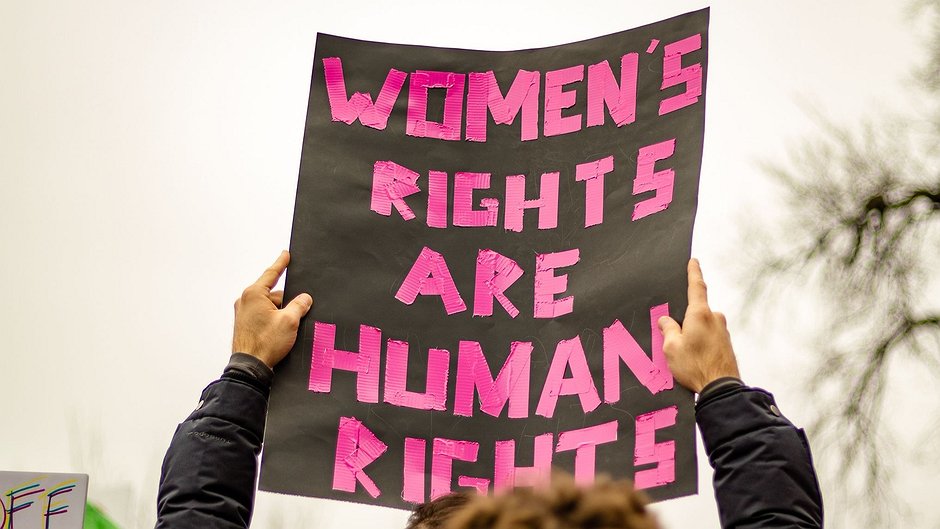 WOMEN'S
RIGHTS
ARE
HUMAN
RIGHTS
FF